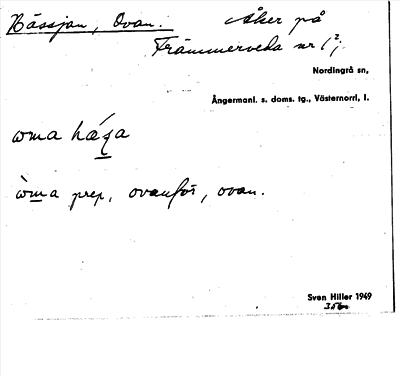 Hässjan, Ovan. Åker på
Främmerveda nr 1²;
Nordingrå sn,
Ångermanl. s. doms. tg., Västernorrl, l.
ꞷma
ꞷ̀ma prep, ovanför, ovan.
Sven Hiller 1949